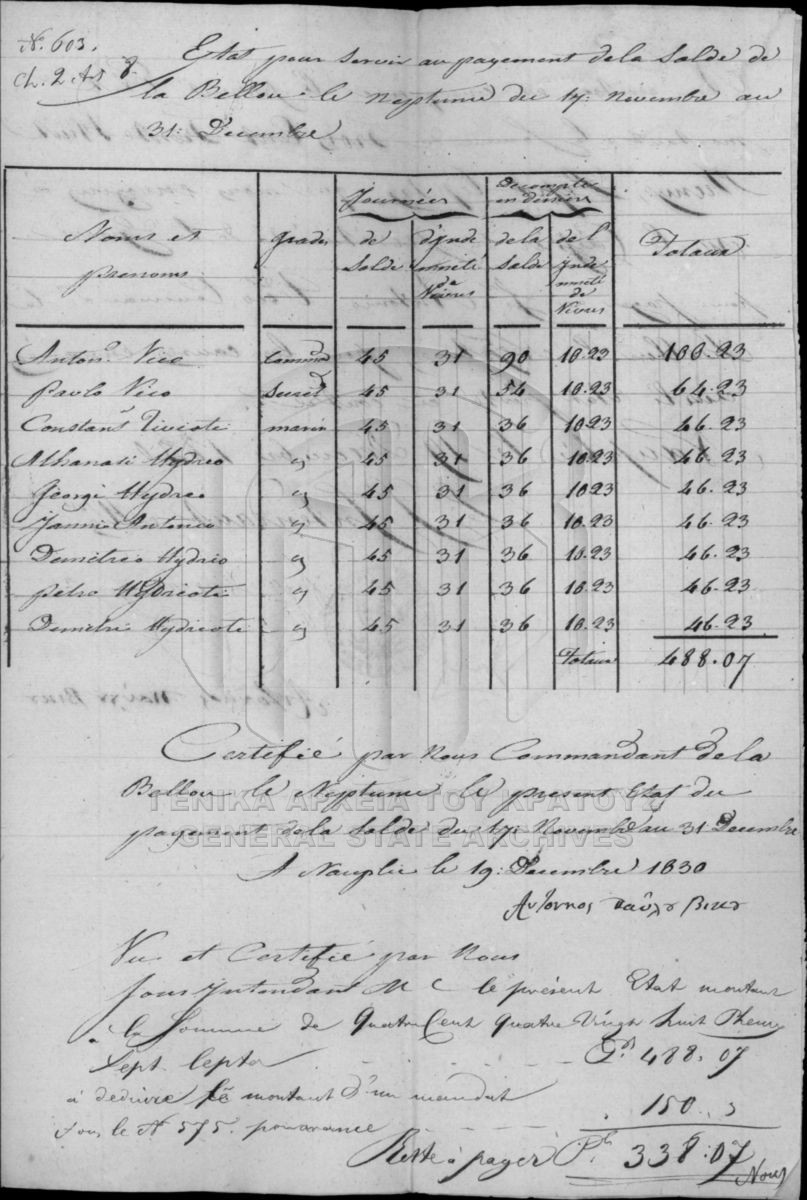 N.º 603.
Ch. 2 Art 8
Etat pour servir au payement de la Solde de
la Bellou le Neptume du 17: Novembre au
31: Decembre
Noms et prenoms | grades | Journées de Solde | Journées d'Yndemnité de Vivres | Decompte en deniers de la Solde | Decompte en deniers de l'Yndemnité de Vivres | Totaux
Anton.º Vico | Commd | 45 | 31 | 90 | 10.23 | 100.23
Paolo Vico | | 45 | 31 | 54 | 10.23 | 64.23
Constant | marin | 45 | 31 | 36 | 10.23 | 46.23
Athanasi Hydreo | | 45 | 31 | 36 | 10.23 | 46.23
Georgi Hydreo | | 45 | 31 | 36 | 10.23 | 46.23
Jannio Antonio | | 45 | 31 | 36 | 10.23 | 46.23
Demitrio Hydrio | | 45 | 31 | 36 | 10.23 | 46.23
petro Hydrioti | | 45 | 31 | 36 | 10.23 | 46.23
Demitri Hydrioti | | 45 | 31 | 36 | 10.23 | 46.23
Totaux 488.07
Certifié par Nous Commandant de la
Bellou le Neptume le present Etat du
payement de la Solde du 17: Novembre au 31 Decembre
ΓΕΝΙΚΑ ΑΡΧΕΙΑ ΤΟΥ ΚΡΑΤΟΥΣ
GENERAL STATE ARCHIVES
A Nauplie le 19: Decembre 1830
Vu et Certifié par Nous
Sous Yntendant M C le présent Etat montant
a la Somme de Quatre Cent quatre Vingt huit Phenix
Sept lepta - - - P. 488.07
à deduire le montant d'un mandat
sous le Nº 575. pour avance - - - 150
Reste à payer P. 338:07
Nous